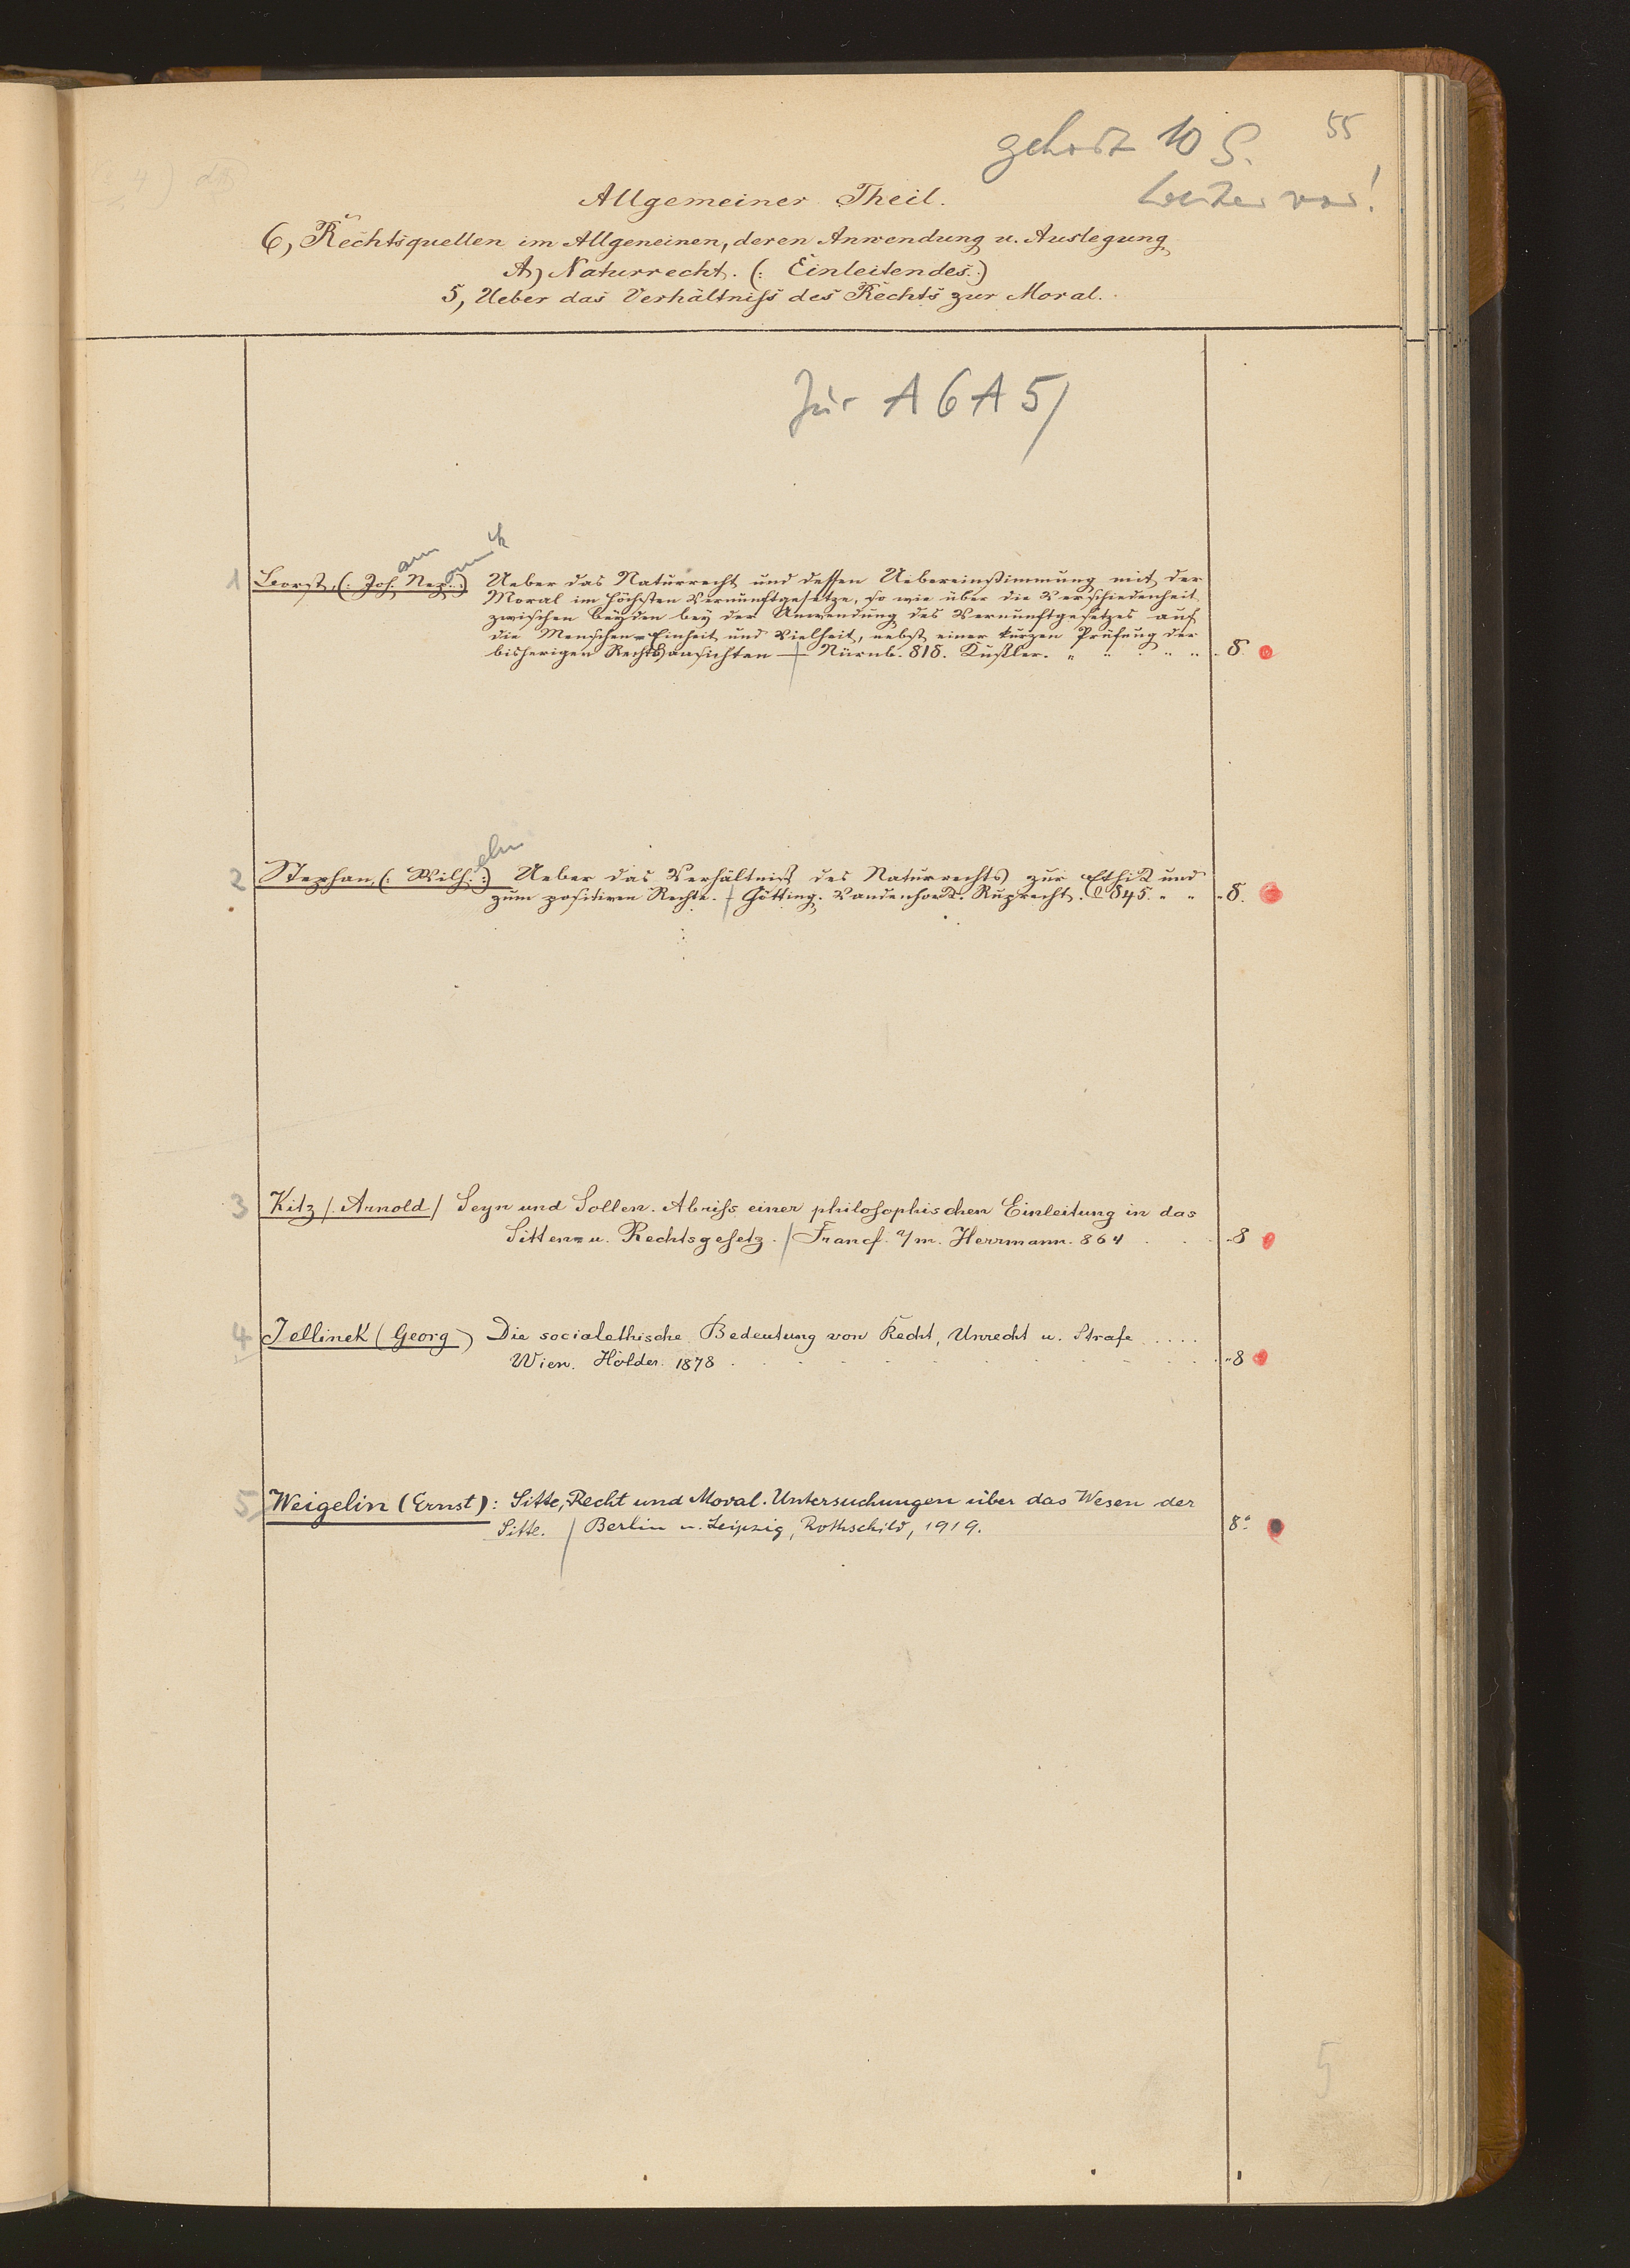 gehört 10 S. 55
weiter vor!
Allgemeiner Theil.
6, Rechtsquellen im Allgemeinen, deren Anwendung u. Auslegung
A) Naturrecht. (: Einleitendes :)
5, Ueber das Verhältniß des Rechts zur Moral.
Zur A 6 A 5/
ann omuk
1 Borst, (: Joh. Nep. :) Ueber das Naturrecht und dessen Uebereinstimmung mit der
Moral im höchsten Vernunftgesetze, so wie über die Verschiedenheit
zwischen beyden bey der Anwendung des Vernunftgesetzes auf
die Menschen-Einheit und Vielheit, nebst einer kurzen Prüfung der
bisherigen Rechtsansichten / Nürnb. 818. 8.
elm
2 Stephan, (: Wilh. :) Ueber das Verhältniß des Naturrechts zur Ethik und
zum positiven Rechte. / Götting. Vandenhoek. Ruprecht. 845. " " 8.
3 Kitz /: Arnold / Seyn und Sollen. Abriss einer philosophischen Einleitung in das
Sitten- u. Rechtsgesetz. / Francf. a/m. Herrmann. 864 . . . 8
4 Jellinek (Georg) Die socialethische Bedeutung von Recht, Unrecht u. Strafe ....
Wien. Hölder. 1878 . . . 8
5 Weigelin (Ernst): Sitte, Recht und Moral. Untersuchungen über das Wesen der
Sitte. / Berlin u. Leipzig, Rothschild, 1919. 8°
5